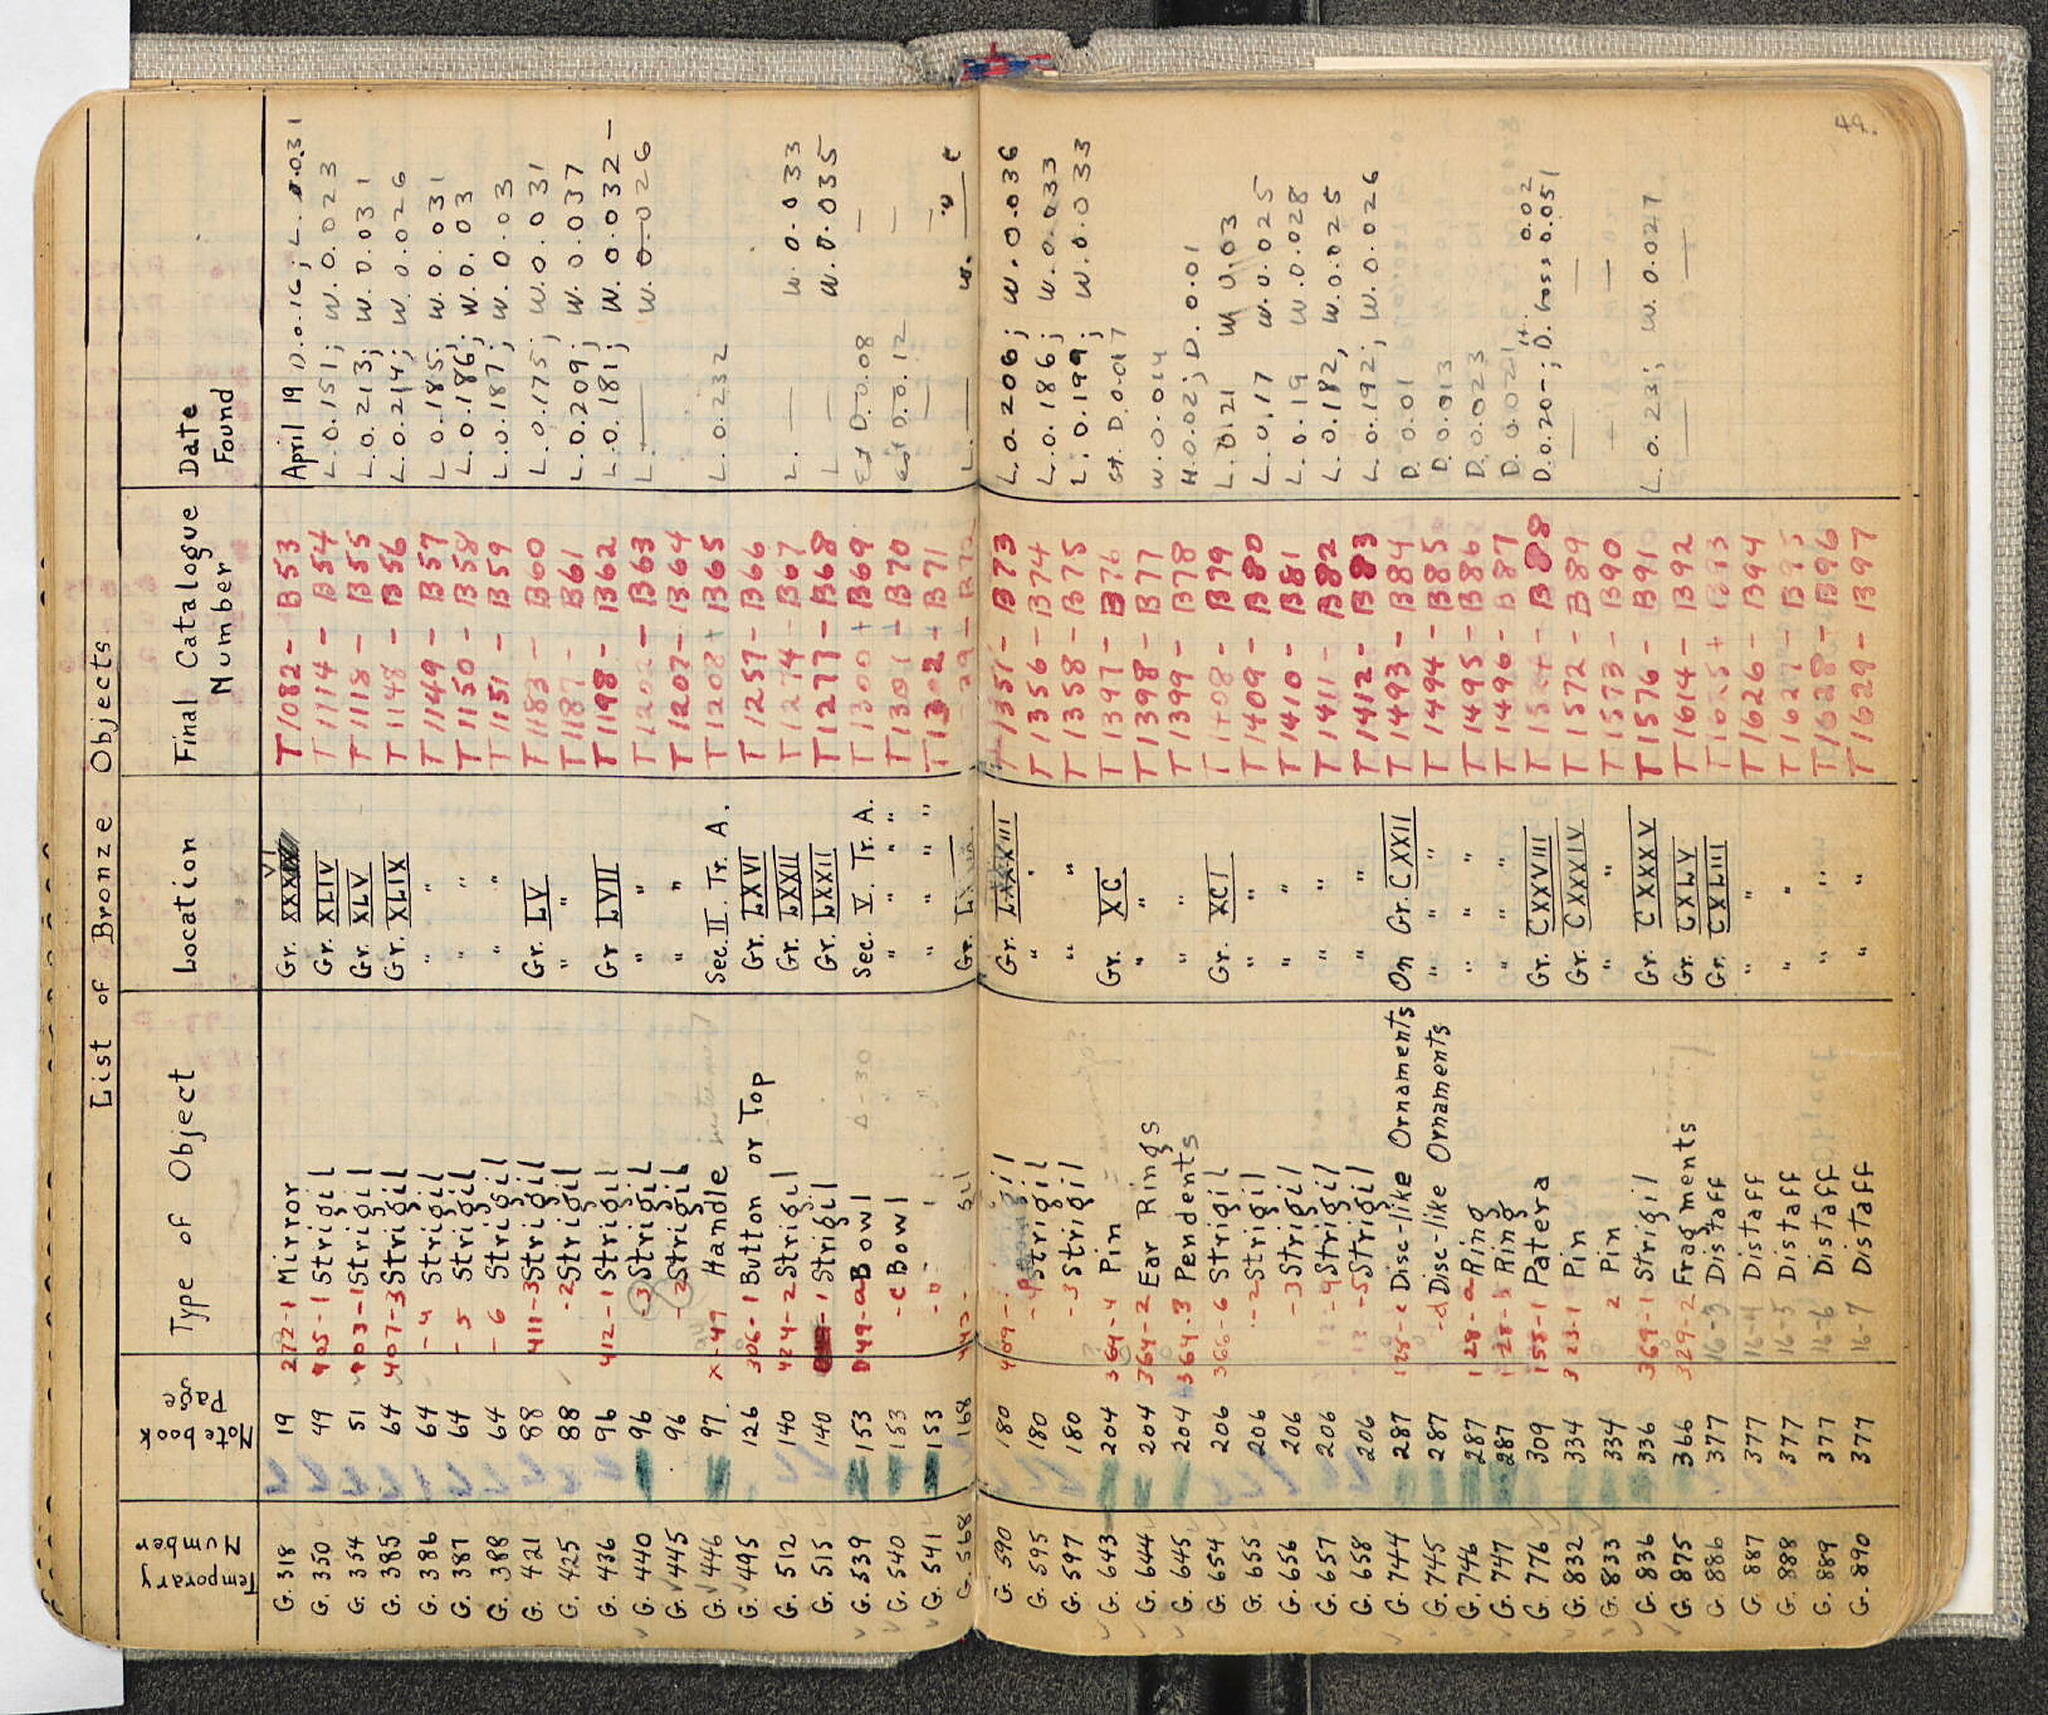 List of Bronze Objects
Temporary Number Notebook Page Type of Object Location Final Catalogue Number Date Found
G. 318 19 272-1 Mirror Gr. VI T 1082 - B53 April 19 D.0.16; L. 0.031
G. 350 49 405-1 Strigil Gr. XLIV T 1114 - B54 L.0.151; W. 0.023
G. 354 51 403-1 Strigil Gr. XLV T 1118 - B55 L.0.213; W. 0.031
G. 385 64 407-3 Strigil Gr. XLIX T 1148 - B56 L.0.214; W. 0.026
G. 386 64 -4 Strigil " " T 1149 - B57 L.0.185; W. 0.031
G. 387 64 -5 Strigil " " T 1150 - B58 L.0.186; W. 0.03
G. 388 64 -6 Strigil " " T 1151 - B59 L.0.187; W. 0.03
G. 421 88 411-3 Strigil Gr. LV T 1183 - B60 L.0.175; W. 0.031
G. 425 88 -2 Strigil " " T 1187 - B61 L.0.209; W. 0.037
G. 436 96 412-1 Strigil Gr LVII T 1198 - B62 L.0.181; W. 0.032 -
G. 440 96 -3 Strigil " " T 1202 - B63 L. — W. 0.026
G. 445 96 -2 Strigil " " T 1207 - B64
G. 446 97. X-49 Handle Sec. II Tr. A. T 1208 + B65 L. 0.232
G. 495 126 306-1 Button or Top Gr. LXVI T 1257 - B66
G. 512 140 424-2 Strigil Gr. LXXII T 1274 - B67 L. — W. 0.033
G. 515 140 -1 Strigil Gr. LXXII T 1277 - B68 L — W. 0.035
G. 539 153 D49-a Bowl Δ-30 Sec. V. Tr. A. T 1300 + B69 Est D. 0.08 —
G. 540 153 -c Bowl " " " " T 1301 + B70 Est D. 0.12 —
G. 541 153 " " " " T 1302 + B71 — —
G. 568 168 Gr. B72 L. — W.
G. 590 180 409- Gr. LXXXIII T 1351 - B73 L.0.206; W. 0.036
G. 595 180 Strigil " " T 1356 - B74 L.0.186; W. 0.033
G. 597 180 -3 Strigil " " T 1358 - B75 L.0.199; W. 0.033
G. 643 204 364-4 Pin Gr. XC T 1397 - B76 st. D. 0.017
G. 644 204 364-2 Ear Rings " " T 1398 - B77 W. 0.014
G. 645 204 364-3 Pendents " " T 1399 - B78 H.0.02; D. 0.01
G. 654 206 366-6 Strigil Gr. XCI T 1408 - B79 L. 0.21 W 0.03
G. 655 206 -2 Strigil " " T 1409 - B80 L. 0.17 W. 0.025
G. 656 206 -3 Strigil " " T 1410 - B81 L. 0.19 W. 0.028
G. 657 206 -4 Strigil " " T 1411 - B82 L. 0.182, W. 0.025
G. 658 206 -5 Strigil " " T 1412 - B83 L. 0.192; W. 0.026
G. 744 287 128-c Disc-like Ornaments On Gr. CXXII T 1493 - B84 D. 0.01
G. 745 287 -d Disc-like Ornaments " " " T 1494 - B85 D. 0.013
G. 746 287 128-a Ring " " " T 1495 - B86 D. 0.023
G. 747 287 Ring " " " T 1496 - B87 D. 0.021
G. 776 309 155-1 Patera Gr. CXXVIII B88 D.0.20-; Ht. 0.02 D. boss 0.051
G. 832 334 323-1 Pin Gr. CXXXIV T 1572 - B89 — —
G. 833 334 2 Pin " " T 1573 - B90 —
G. 836 336 369-1 Strigil Gr. CXXXV T 1576 - B91 L. 0.23; W. 0.027
G. 875 366 329-2 Fragments Gr. CXLV T 1614 - B92 — —
G. 886 377 16-3 Distaff Gr. CXLIII T 1625 + B93
G. 887 377 16-4 Distaff " " T 1626 - B94
G. 888 377 16-5 Distaff " " T 1627 - B95
G. 889 377 16-6 Distaff " " T 1628 - B96
G. 890 377 16-7 Distaff " " T 1629 - B97
49.